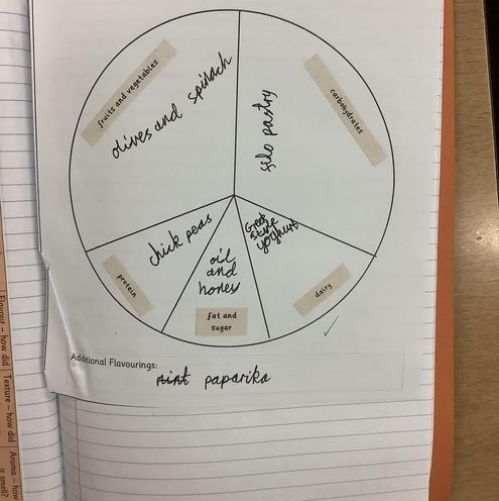 fruits and vegetables
olives and spinach
carbohydrates
filo pastry
chick peas
protein
oil
and
honey
fat and
sugar
Greek
style
yoghurt
dairy
Additional Flavourings:
mint paprika
Flavour – how did
Texture – how did
Aroma – how
it smell?